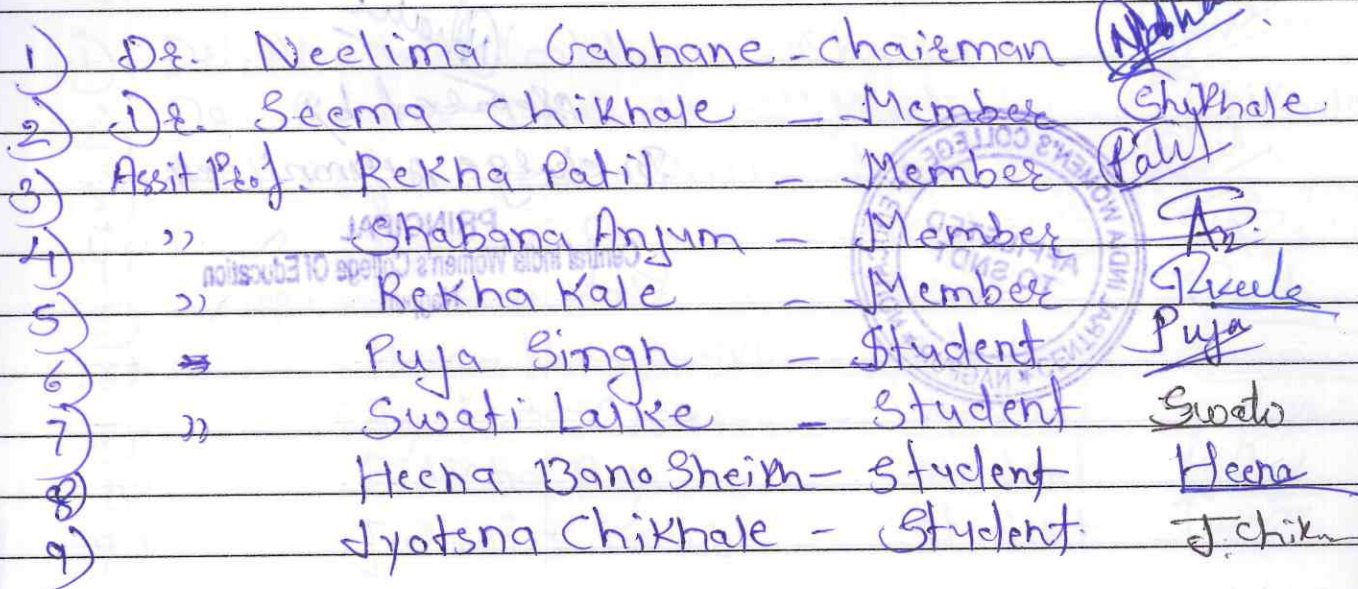 1) Dr. Neelima Gabhane - Chairman
2) Dr. Seema Chikhale - Member Chikhale
3) Assit Prof. Rekha Patil - Member Patil
4) ,, Shabana Anjum - Member
5) ,, Rekha Kale - Member
6) Puja Singh - Student Puja
7) ,, Swati Larke - Student Swati
8) Heena Bano Sheikh - Student Heena
9) Jyotsna Chikhale - Student. J. Chik
PRINCIPAL
Central India Women's College Of Education
WOMEN'S COLLEGE